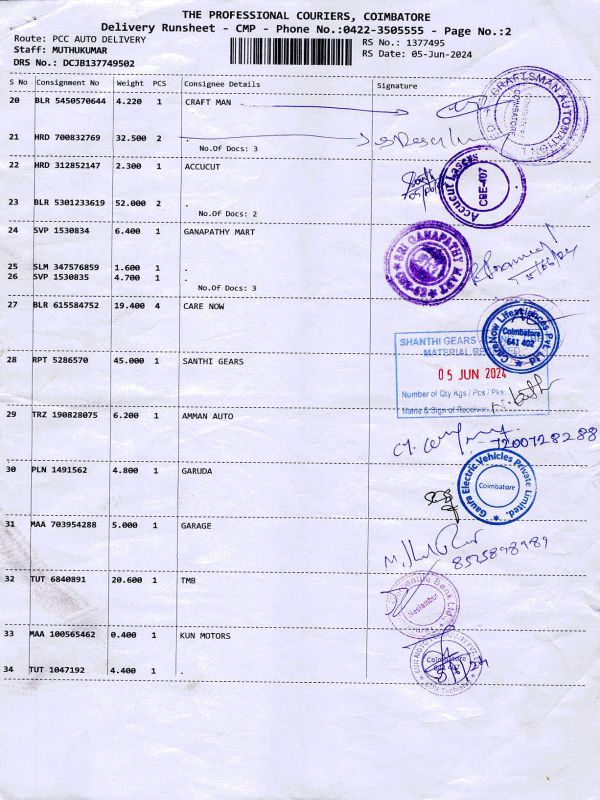 THE PROFESSIONAL COURIERS, COIMBATORE
Delivery Runsheet - CMP - Phone No.:0422-3505555 - Page No.:2
Route: PCC AUTO DELIVERY
RS No.: 1377495
Staff: MUTHUKUMAR
RS Date: 05-Jun-2024
DRS No.: DCJB137749502
S No Consignment No Weight PCS Consignee Details Signature
20 BLR 5450570644 4.220 1 CRAFT MAN
CRAFTSMAN AUTOMATION
COIMBATORE
21 HRD 700832769 32.500 2 .
No.Of Docs: 3
22 HRD 312852147 2.300 1 ACCUCUT
Accucut Lasers
CBE-407
23 BLR 5301233619 52.000 2 .
No.Of Docs: 2
24 SVP 1530834 6.400 1 GANAPATHY MART
SRI GANAPATHY MART
25 SLM 347576859 1.600 1 .
26 SVP 1530835 4.700 1 .
No.Of Docs: 3
27 BLR 615584752 19.400 4 CARE NOW
CareNow Lifesciences Pvt. Ltd
Coimbatore
641 402
SHANTHI GEARS
MATERIAL
05 JUN 2024
Number of Qty Kgs / Pcs / Pks
Name & Sign of Receiver
28 RPT 5286570 45.000 1 SANTHI GEARS
29 TRZ 190828075 6.200 1 AMMAN AUTO
7200728288
30 PLN 1491562 4.800 1 GARUDA
Electric Vehicles Private Limited.
Coimbatore
31 MAA 703954288 5.000 1 GARAGE
8525898989
32 TUT 6840891 20.600 1 TMB
Bank Ltd.
33 MAA 100565462 0.400 1 KUN MOTORS
Coimbatore
34 TUT 1047192 4.400 1 .